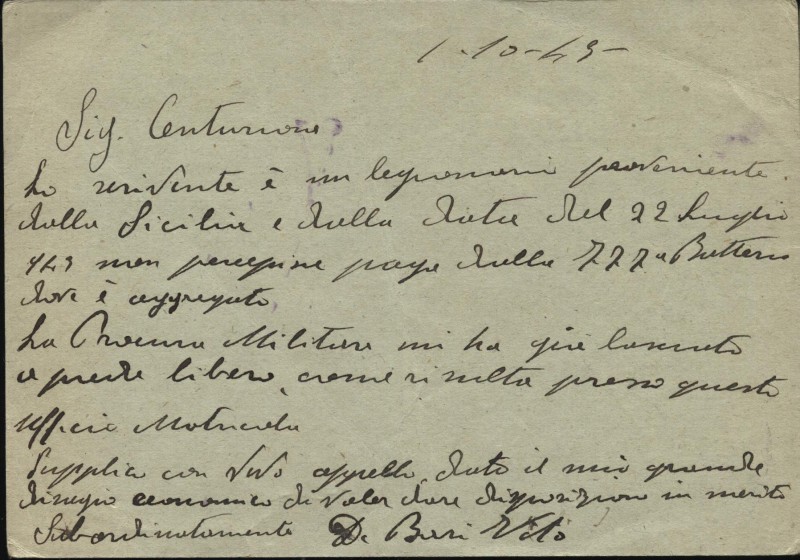 1-10-43-
Sig. Centurione
Lo scrivente è un legionario proveniente
dalla Sicilia e dalla data del 22 Luglio
943 non percepisce paga dalla 777a Batteria
dove è aggregato
La Procura Militare mi ha già lasciato
a piede libero, come risulta presso questo
Ufficio Matricola
Supplica con vivo appello, dato il mio grande
disagio economico di voler dare disposizioni in merito
Subordinatamente De Bari Vito